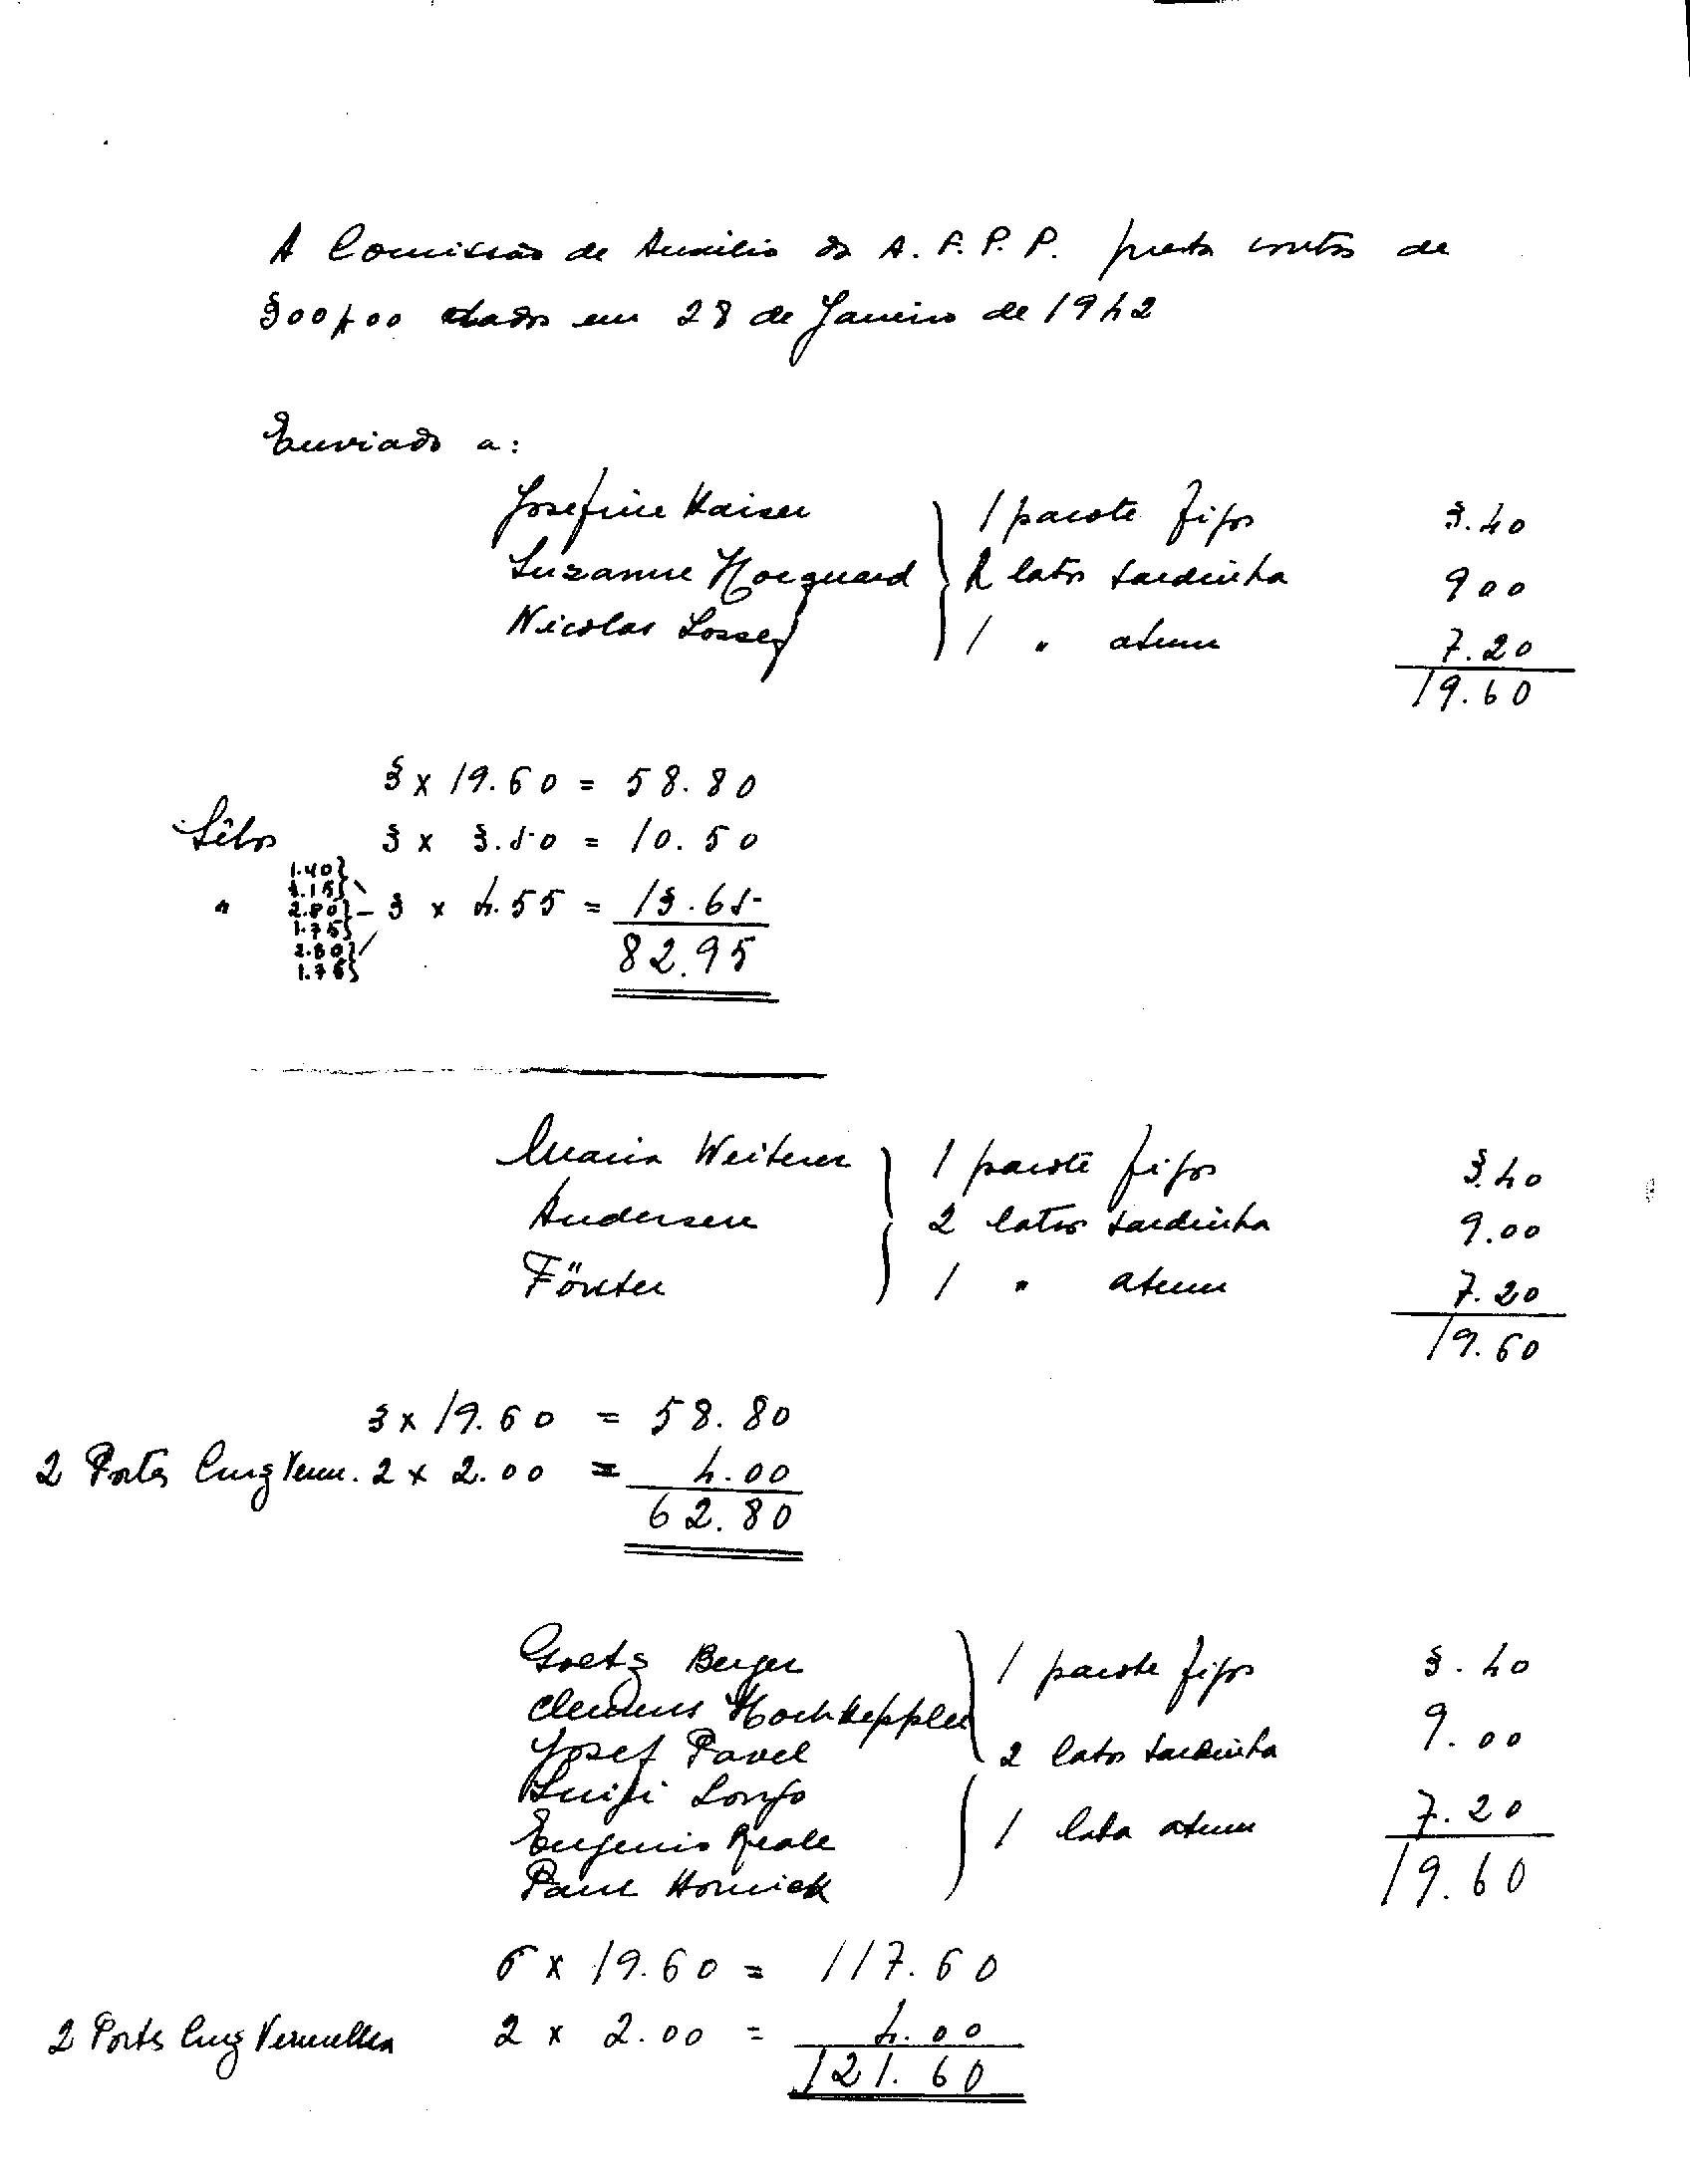 A Comissão de Auxilio da A. F. P. P. presta contas de
300$00 dados em 28 de Janeiro de 1942
Enviado a:
Josefine Kaiser } 1 pacote figos 3.40
Suzanne Hocquard } 2 latas sardinha 900
Nicolas } 1 " atum 7.20
19.60
3 x 19.60 = 58.80
Sêlos 3 x 3.50 = 10.50
1.40}
3.15}
" 2.80} – 3 x 4.55 = 13.65
1.75}
2.80}
1.75}
82.95
Maria Weiterer } 1 pacote figos 3.40
Andersen } 2 latas sardinha 9.00
Förster } 1 " atum 7.20
19.60
3 x 19.60 = 58.80
2 Portes Cruz Verm. 2 x 2.00 = 4.00
62.80
Goetz Berger } 1 pacote figos 3.40
Clemens Hochkeppler 9.00
Josef Pavel 2 latas sardinha
Luigi Longo }
Eugenio Reale 1 lata atum 7.20
Paul Hornick 19.60
6 x 19.60 = 117.60
2 Portes Cruz Vermelha 2 x 2.00 = 4.00
121.60